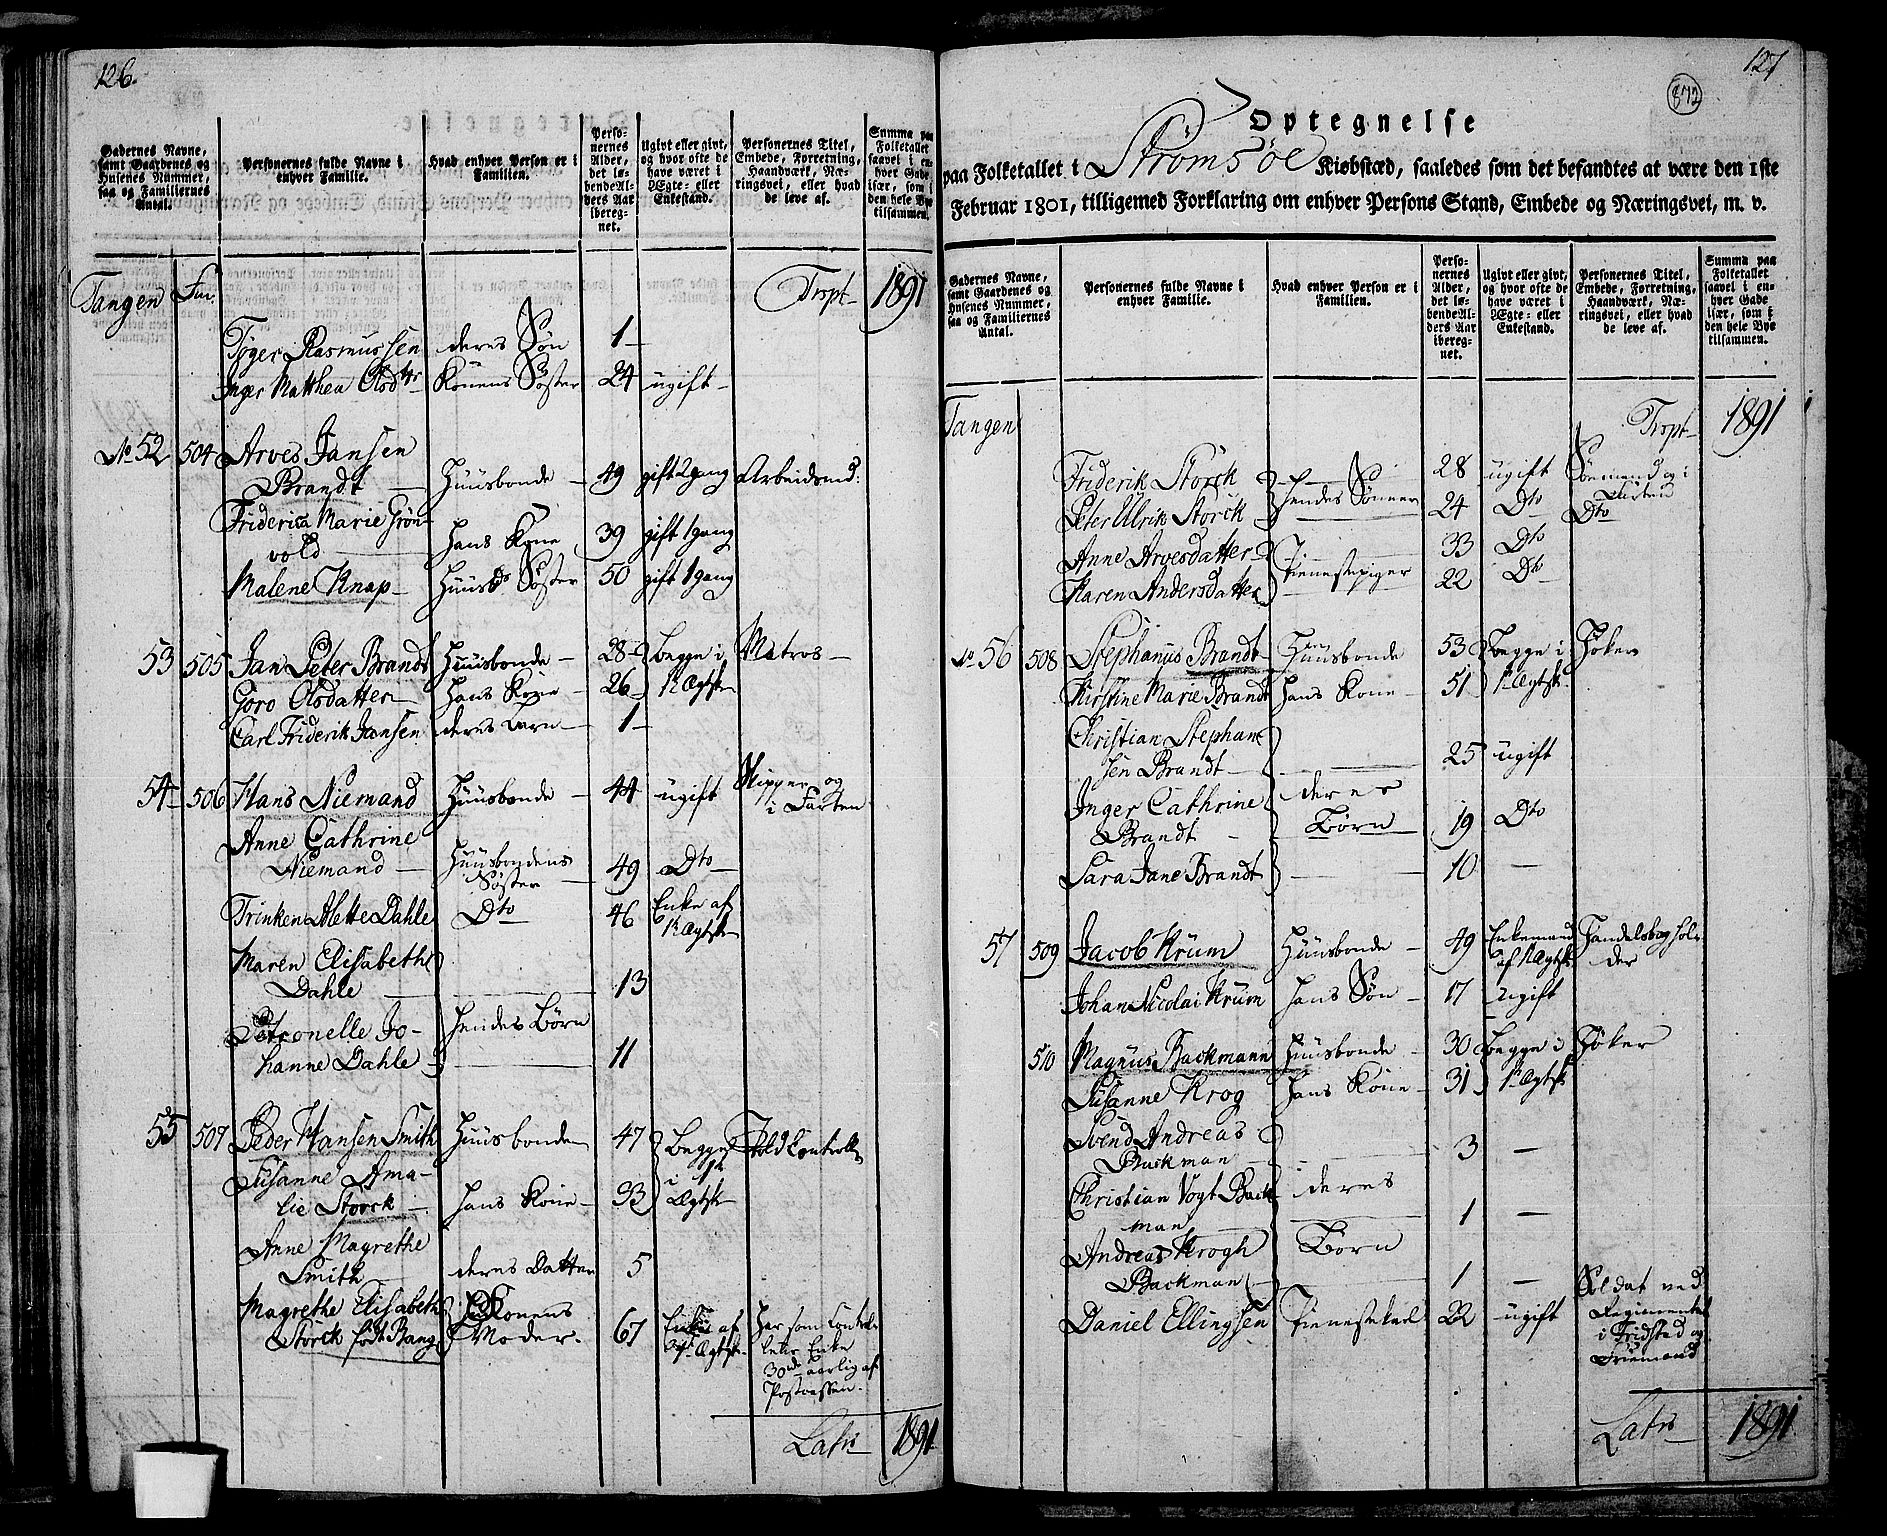 126.
Gadernes Navne,
samt Gaardenes og
Husenes Nummer,
saa og Familiernes
Antal.
Personernes fulde Navne i
enhver Familie.
Hvad enhver Person er i
Familien.
Perso-
nernes
Alder,
det lø-
bendeAl-
ders Aar
ibereg-
net.
Ugivt eller givt,
og hvor ofte de
have været i
Ægte- eller
Enkestand.
Personernes Titel,
Embede, Forretning,
Haandværk, Næ-
ringsvei, eller hvad
de leve af.
Summa paa
Folketallet
saavel i en-
hver Gade
især, som i
den hele Bye
tilsammen.
Tangen Trspt 1891
Tøger Rasmussen deres Søn 1
Inger Matthea Olsdtr Konens Søster 24 ugift
No 52 504 Arves Jansen
Brandt Huusbonde 49 gift 2 gang Arbeidsmd:
Friderica Marie Grøn-
vold hans Kone 39 gift 1 gang
Malene Knap Huusbds Søster 50 gift 1 gang
53 505 Jan Peter Brandt Huusbonde 28 begge i Matros
Goro Olsdatter hans Kone 26 1te Ægtsk
Carl Friderik Jansen deres barn 1
54 506 Hans Niemand Huusbonde 44 ugift Skipper og
i Farten
Anne Cathrine
Niemand Huusbondens
Søster 49 Dto
Trinken Alette Dahle Dto 46 Enke af
1te Ægtsk
Maren Elisabeth
Dahle 13
Petronelle Jo- hendes Børn
hanne Dahle 11
55 507 Peder Hansen Smith Huusbonde 47 begge Told Controll
Susanne Ama- i 1te
lie Storck hans Kone 33 Ægtsk
Anne Magrethe
Smith deres Datter 5
Magrethe Elisabeth Konens
Storck født Bang Moder. 67 Enke af
Ægtsk har som Control-
leurs Enke
30 rd aarlig af
Postcassen.
Latis 1891
127
872
Optegnelse
paa Folketallet i Strømsøe Kiøbstæd, saaledes som det befandtes at være den 1ste
Februar 1801, tilligemed Forklaring om enhver Persons Stand, Embede og Næringsvei, m. v.
Gadernes Navne,
samt Gaardenes og
Husenes Nummer,
saa og Familiernes
Antal.
Personernes fulde Navne i
enhver Familie.
Hvad enhver Person er i
Familien.
Perso-
nernes
Alder,
det lø-
bendeAl-
ders Aar
ibereg-
net.
Ugivt eller givt,
og hvor ofte de
have været i
Ægte- eller
Enkestand.
Personernes Titel,
Embede, Forretning,
Haandværk, Næ-
ringsvei, eller hvad
de leve af.
Summa paa
Folketallet
saavel i en-
hver Gade
især, som i
den hele Bye
tilsammen.
Tangen Trspt 1891
Friderik Storck 28 ugift Søemand og i
Farten
Peter Ulrik Storck hendes Sønner 24 Dto Dto
Anne Arvesdatter 33 Dto
Karen Andersdatter tienestepiger 22 Dto
No 56 508 Stephanus Brandt Huusbonde 53 begge i Høker
Kirstine Marie Brandt hans Kone 51 1te Ægtsk
Christian Stephan-
sen Brandt 25 ugift
Inger Cathrine deres
Brandt Børn 19 Dto
Sara Jane Brandt 10 —
57 509 Jacob Krum Huusbonde 49 Enkemand Handelsbog hol-
af 1te Ægtsk der
Johan Nicolai Krum hans Søn 17 ugift
510 Magnus Backmann Huusbonde 30 begge i Høker
Susanne Krog hans Kone 31 1te Ægtsk
Svend Andreas
Backman 3 —
Christian Vogt Back- deres
man 1 —
Andreas Krogh Børn
Backman 1 —
Daniel Ellingsen tienestekarl 22 ugift Soldat ved
Regimentet
i Fridstad og
Latis 1891